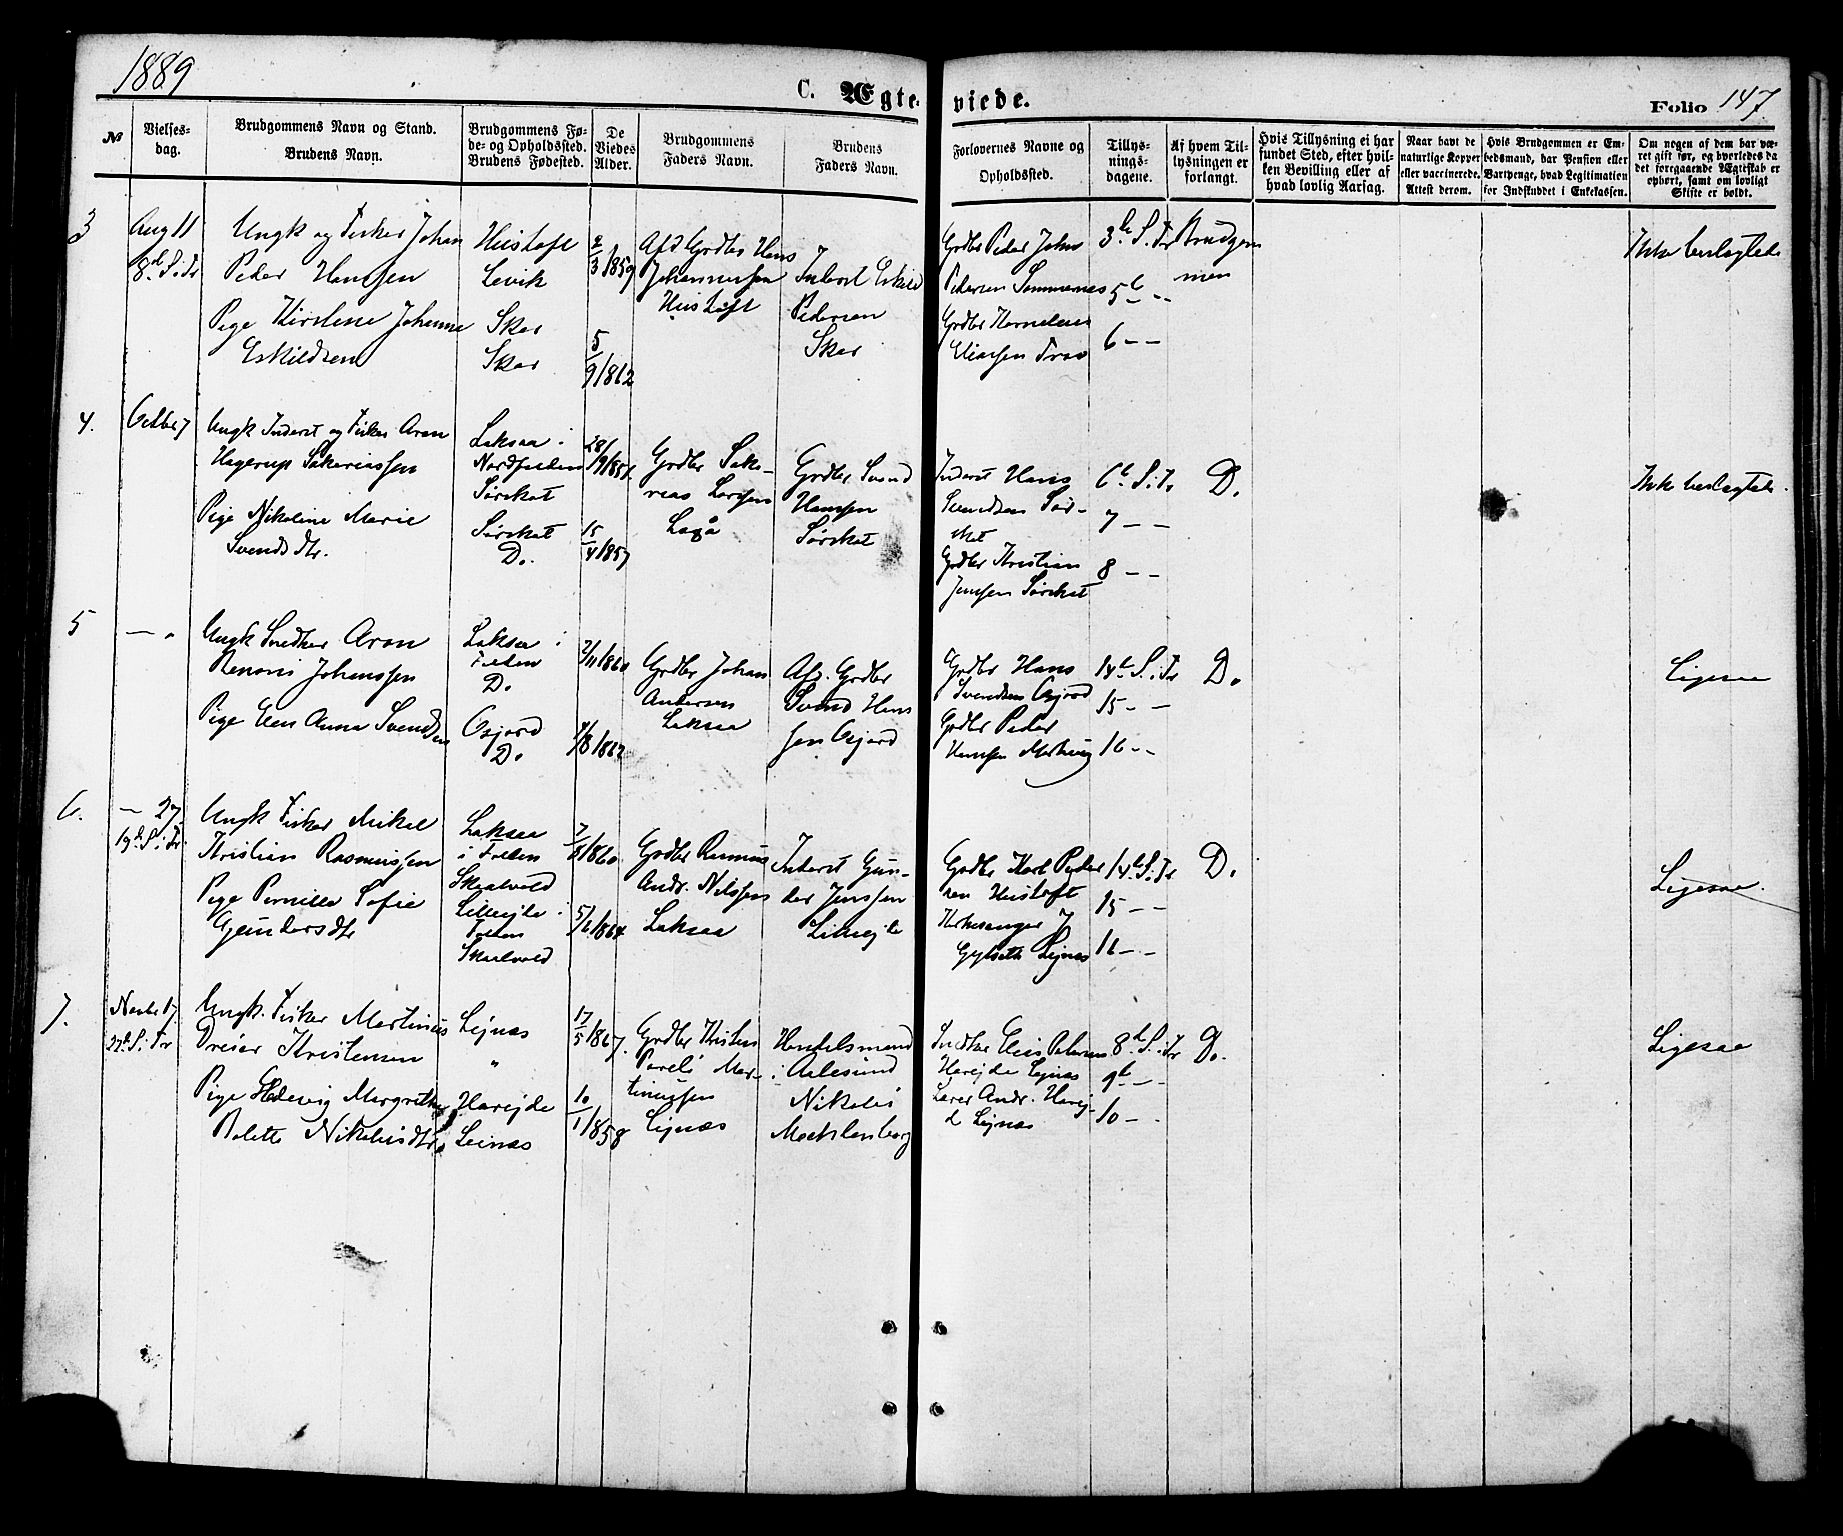 1889
C. Ægteviede.
Folio 147
№
Vielses-dag.
Brudgommens Navn og Stand. Brudens Navn.
Brudgommens Føde- og Opholdssted. Brudens Fødested.
De Viedes Alder.
Brudgommens Faders Navn.
Brudens Faders Navn.
Forlovernes Navne og Opholdssted.
Tillysningsdagene.
Af hvem Tillysningen er forlangt.
Hvis Tillysning ei har fundet Sted, efter hvilken Bevilling eller af hvad lovlig Aarsag.
Naar havt de naturlige Kopper eller vaccinerede. Attest derom.
Hvis Brudgommen er Embedsmand, har Pension eller Vartpenge, hvad Legitimation for Indskuddet i Enkekassen.
Om nogen af dem har været gift før, og hvorledes da det foregaaende Ægteskab er ophørt, samt om lovligt Skifte er holdt.
3
Aug 11
8d S. i Tr
Ungk og Fisker Johan
Peder Hansen
Pige Kirstene Johanna
Eskildsen
Hustoft
Levik
Skar
Skar
2/3 1859
5/9 1862
Afd Grdbr Hans
Johannessen
Hustoft
Inderst Eskild
Pedersen
Skar
Grdbr Peder John
Pedersen Sommernes
Grdbr Kornelius
Eliassen
3d S. Tr
5t - -
6 - -
Brudgom
men
Ikke beslagtede
4.
Octbr 7
Ungk Inderst og Fisker Aron
Hagerup Sakariassen
Pige Nikoline Marie
Svendsdtr.
Laksaa i
Nordfolden
Sørskot
Sørskot
D.
28/9 1854
15/4 1857
Grdbr Saka-
rias Larsen
Grdbr Svend
Hansen
Sørskot
Inderst Hans
Svendsen Sør-
skot
Grdbr Kristian
Jensen Sørskot
6t S. i Tr
7 - -
8 - -
D.
Ikke beslagtede.
5
Ungk Snedker Aron
Johanssen
Pige Elen Anna Svendsen
Laksaa i
Folden
D.
Osjord
D.
2/11 1860
4/8 1862
Grdbr Johan
Andersen
Laksaa
Afd. Grdbr
Svend Han
sen Osjord
Grdbr Hans
Svendsen Osjord
Grdbr Peder
Hansen
14t S. i Tr
15 - -
16 - -
D.
Ligesaa
6.
- 27
19d S. i Tr
Ungk Fisker Mikal
Kristian Rasmussen
Pige Pernille Sofie
Gundersdtr
Laksaa
i Folden
Skaalvold
Lilleejde i
Folden
Skaalvold
7/8 1860
5/6 1864
Grdbr Rasmus
Andr. Nilssen
Laksaa
Inderst Gun-
der Jenssen
Grdbr Karl Peder
sen Hustoft
Kirkesanger J
Gylseth Lejnæs
14d S. i Tr
15 - -
16 - -
D.
Ligesaa.
7.
Novbr 17
22d S. i Tr
Ungk. Fisker Martinus
Dreier Kristensen
Pige Hedevig Margrethe
Bolette Nikolaisdtr
Lejnæs
"
Havejde
Leinæs
17/5 1867.
10/1 1858
Grdbr Kristen
Pareli Mar-
tinussen
Lejnæs
Handelsmand
i Aalesund
Nikolai
Mecklenborg
Indtær Elias Petersen
Havejde Lejnæs
Lærer Andr. Havej-
d Lejnæs
8d S. i Tr
9t - -
10 -
D.
Ligesaa